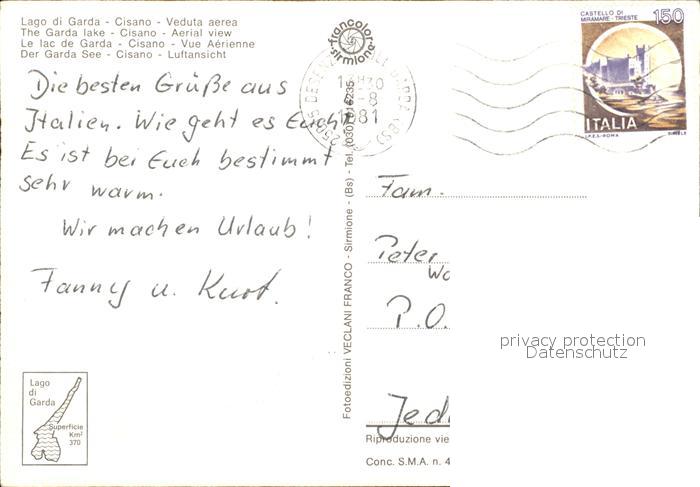 Lago di Garda - Cisano - Veduta aerea
The Garda lake - Cisano - Aerial view
Le lac de Garda - Cisano - Vue Aérienne
Der Garda See - Cisano - Luftansicht
Die besten Grüße aus
Italien. Wie geht es Euch?
Es ist bei Euch bestimmt
sehr warm.
Wir machen Urlaub!
Fanny u. Kurt.
Lago
di
Garda
Superficie
Km²
370
francolor
sirmione
Fotoedizioni VECLANI FRANCO - Sirmione - (Bs) - Tel. (030) 916235
-8
1981
CASTELLO DI
MIRAMARE - TRIESTE
150
ITALIA
I.P.Z.S. - ROMA
Fam.
Peter
P.O.
Jed
Riproduzione vie
Conc. S.M.A. n. 4
privacy protection
Datenschutz